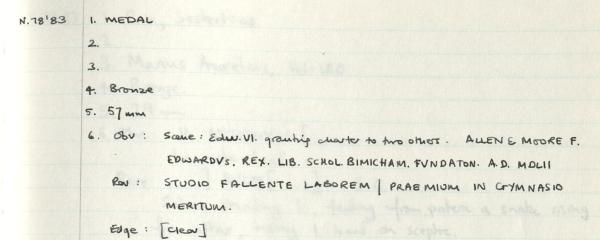 N.78'83 1. MEDAL
2.
3.
4. Bronze
5. 57mm
6. Obv : Scene : Edw. VI. granting charter to two others. ALLEN & MOORE F.
EDWARDVS. REX. LIB. SCHOL. BIMICHAM. FVNDATON. A.D. MDLII
Rev : STUDIO FALLENTE LABOREM | PRAEMIUM IN GYMNASIO
MERITUM.
Edge : [Clear]